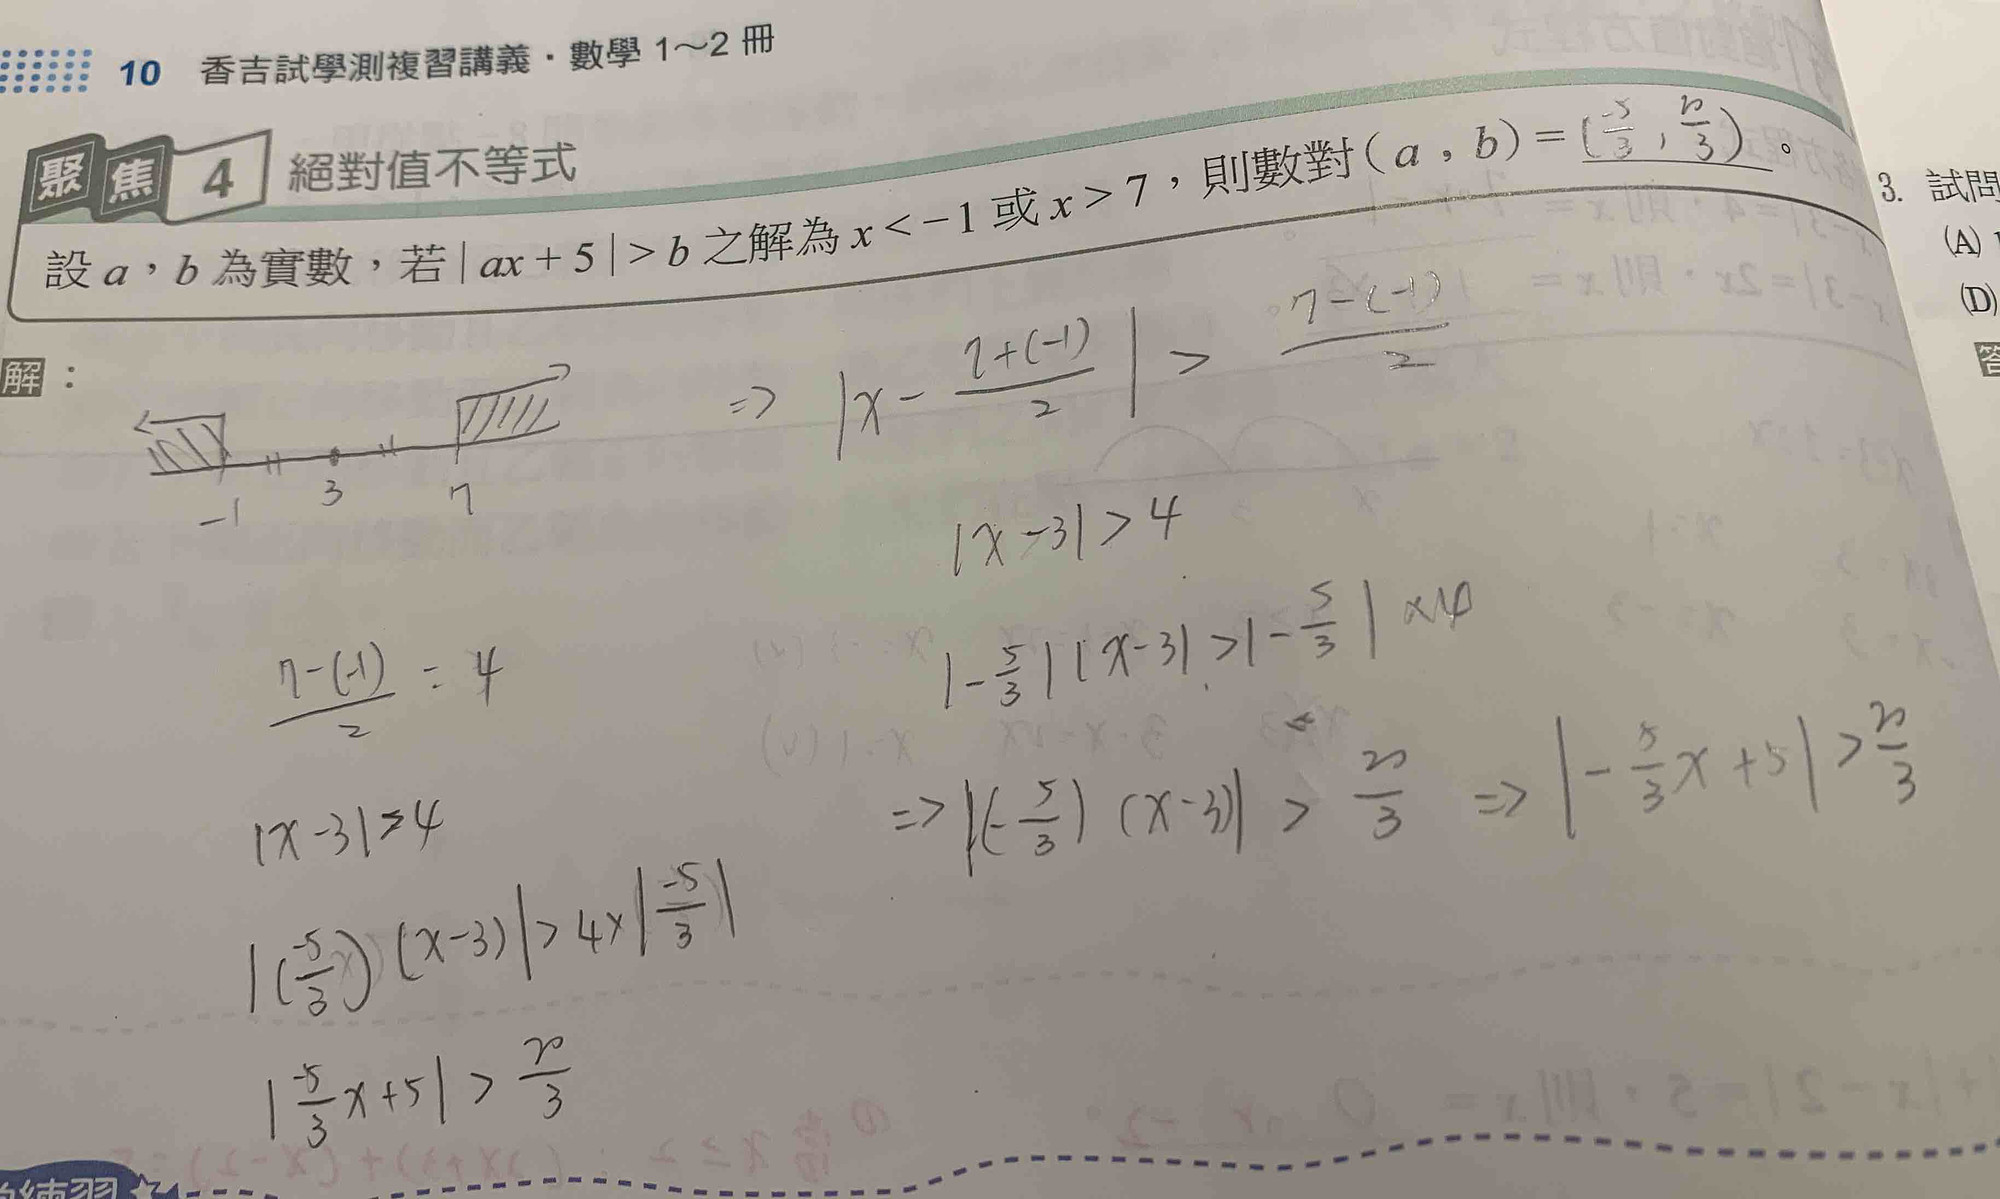 10 香吉試學測複習講義・數學 1～2 冊
聚焦 4 絕對值不等式
設 a，b 為實數，若 | ax + 5 | > b 之解為 x < −1 或 x > 7，則數對 ( a，b ) = (-5/3, 20/3)。
解：
-1 3 7
⇒ |x - (7+(-1))/2| > (7-(-1))/2
|x-3| > 4
|-5/3| |x-3| > |-5/3| ×4
⇒ |(-5/3) (x-3)| > 20/3 ⇒ |-5/3 x + 5| > 20/3
(7-(-1))/2 = 4
|x-3| > 4
|(-5/3) (x-3)| > 4× |-5/3|
|-5/3 x + 5| > 20/3
3. 試問
(A)
(D)
答
練習